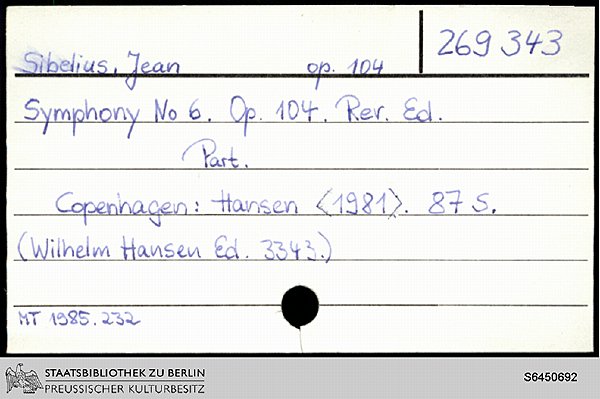 269 343
Sibelius, Jean op. 104
Symphony No 6. Op. 104. Rev. Ed.
Part.
Copenhagen: Hansen <1981>. 87 S.
(Wilhelm Hansen Ed. 3343.)
MT 1985.232
STAATSBIBLIOTHEK ZU BERLIN
PREUSSISCHER KULTURBESITZ
S6450692